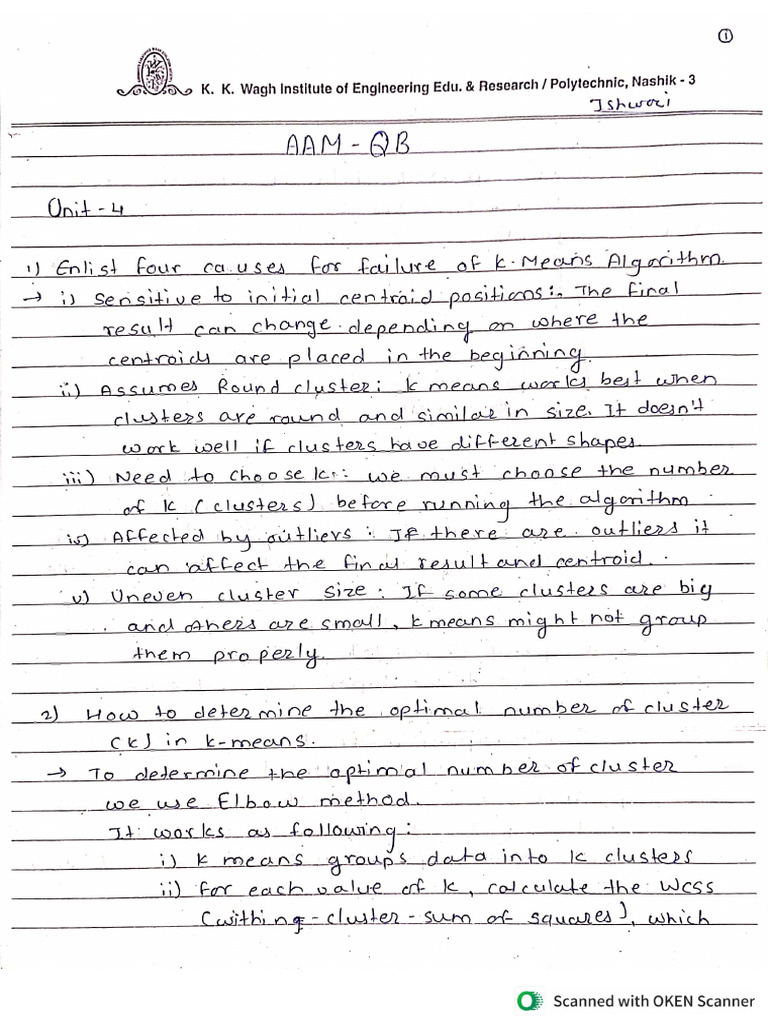 ①
K. K. Wagh Institute of Engineering Edu. & Research / Polytechnic, Nashik - 3
Ishwari
AAM - QB
Unit - 4
1) Enlist four causes for failure of k-Means Algorithm.
→ i) Sensitive to initial centroid positions:- The final
result can change depending on where the
centroids are placed in the beginning.
ii) Assumes Round cluster: k means works best when
clusters are round and similar in size. It doesn't
work well if clusters have different shapes.
iii) Need to choose k: we must choose the number
of k (clusters) before running the algorithm.
iv) Affected by outliers: If there are outliers it
can affect the final result and centroid.
v) Uneven cluster size: If some clusters are big
and others are small, k means might not group
them properly.
2) How to determine the optimal number of cluster
(k) in k-means.
→ To determine the optimal number of cluster
we use Elbow method.
It works as following:
i) k means groups data into k clusters
ii) for each value of k, calculate the WCSS
(withing-cluster-sum of squares), which
Scanned with OKEN Scanner